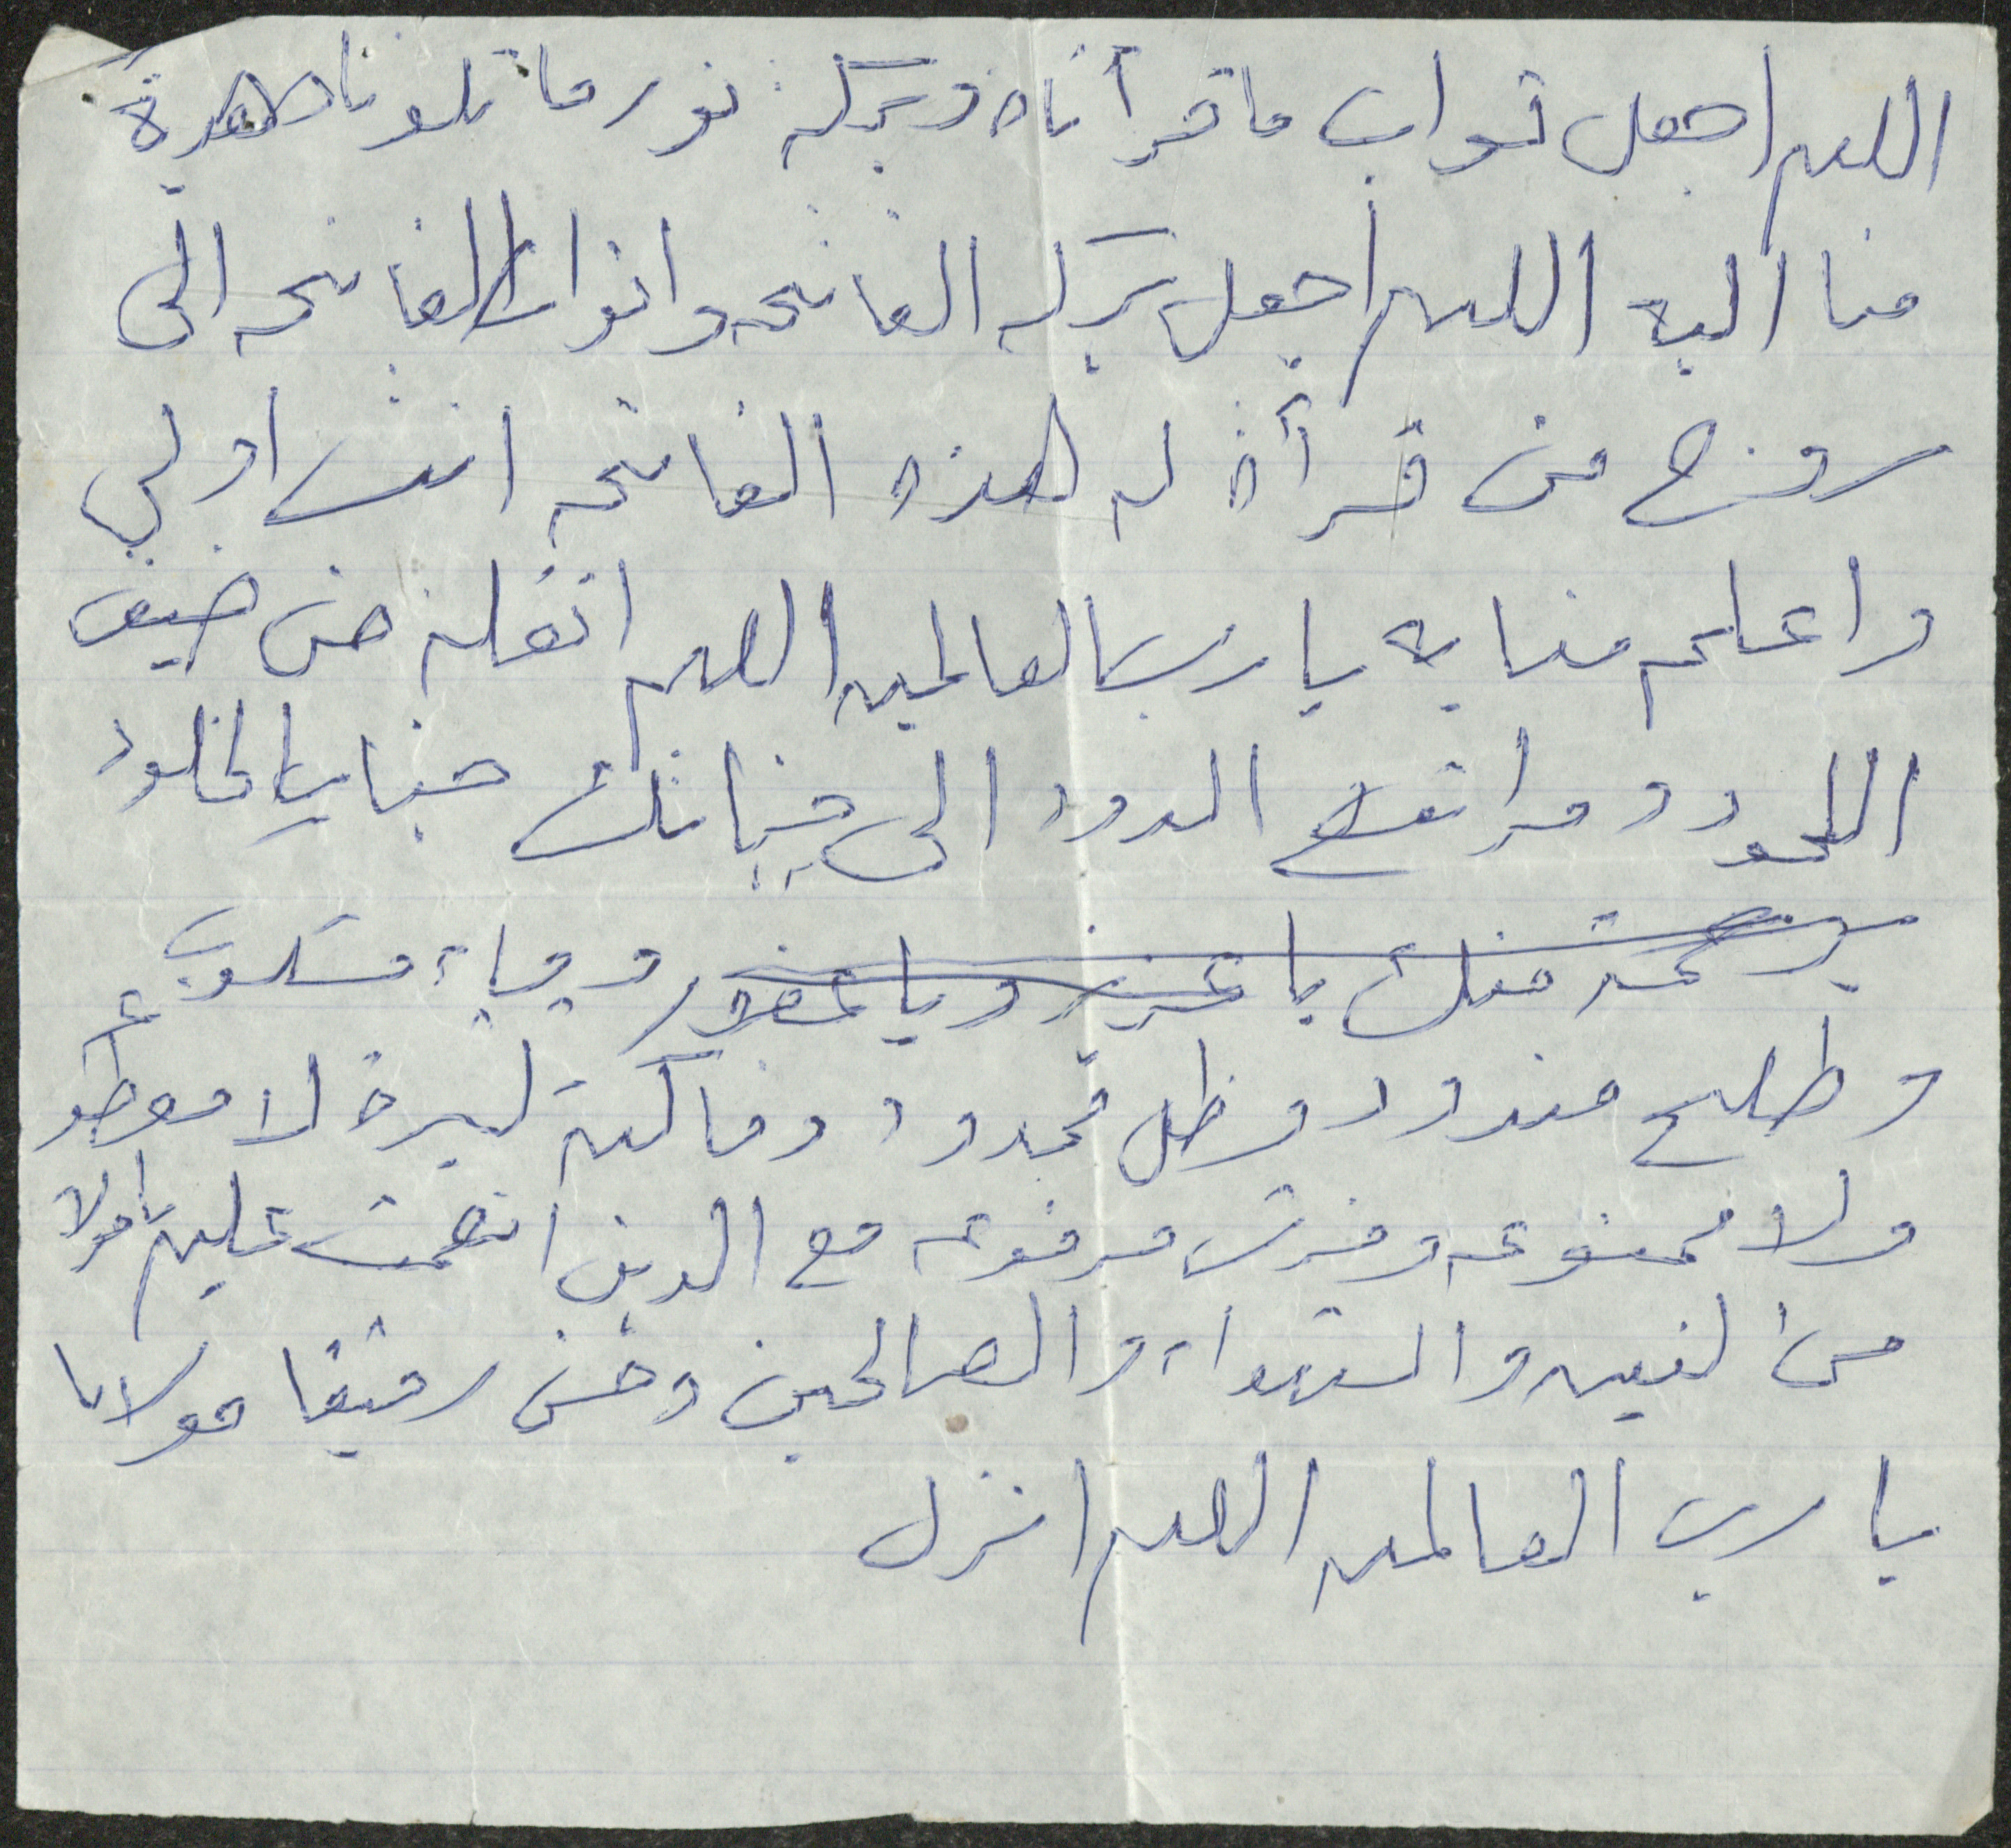 اللهم اجعل ثواب ما قرأناه وبركة نور ما تلوناه هدية
منا اليه اللهم اجعل بركه الفاتحه وانوار الفاتحه الى
روح من قرأة له هذه الفاتحه انت اولي
واعلم منا به يا رب العالمين اللهم انقله من ضيق
اللحود ومراتع الدود الى جناتك جنات الخلود
برحمه منك يا عزيز ويا غفار وماء مسكوب
وطلح مندود وظل ممدود وفاكهة كثيرة لا مقطوعه
ولا ممنوعه وفرش مرفوعه مع الدين انعمت عليهم
من النبين والشهداء والصالحين وحسن رفيقا مولانا
يا رب العالمين اللهم انزل